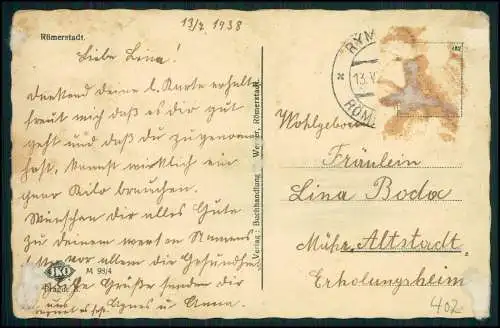 13/3 1938
Römerstadt.
Liebe Lina!
Dankend deine l. Karte erhalten
freut mich daß es dir gut
geht und daß du zugenommen
hast, kannst wirklich ein
paar Kilo brauchen.
Wünschen dir alles Gute
zu deinem werten Namens
vor allem dir Gesundheit
Grüße senden dir
Agnes u Anna.
JKO
M 99/4
Verlag: Buchhandlung Römerstadt.
RYM
13. V
RÖM
482
Wohlgeboren
Fräulein
Lina Boda
Mähr. Altstadt
Erholungsheim
402